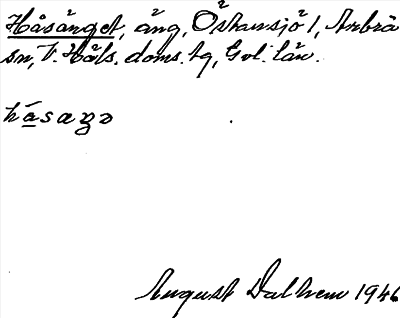 Håsänget, äng, Östansjö 1, Arbrå
sn, V. Häls. doms. tg, Gvl. län.
håsaŋə
August Dalhem 1946